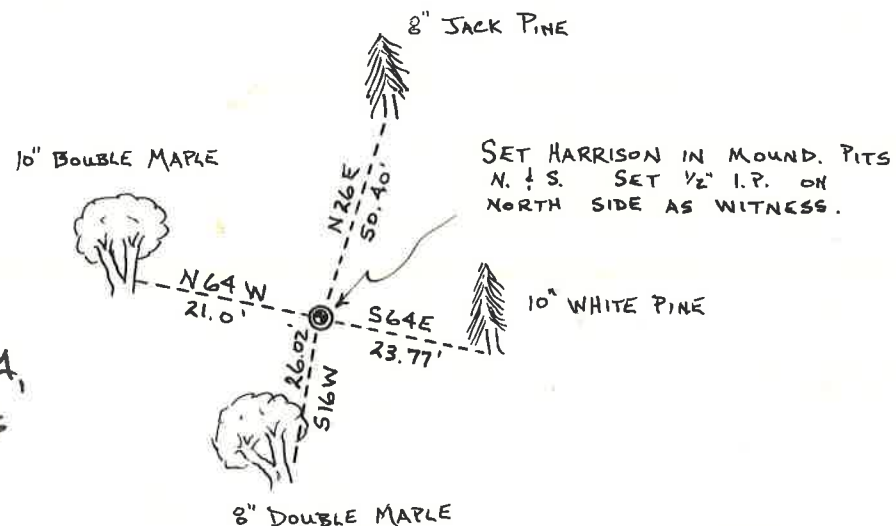 8" JACK PINE
10" BOUBLE MAPLE
SET HARRISON IN MOUND. PITS
N. & S. SET 1/2" I.P. ON
NORTH SIDE AS WITNESS.
N26E
50.40'
N64W
21.0'
S64E
23.77'
10" WHITE PINE
26.02'
S16W
8" DOUBLE MAPLE